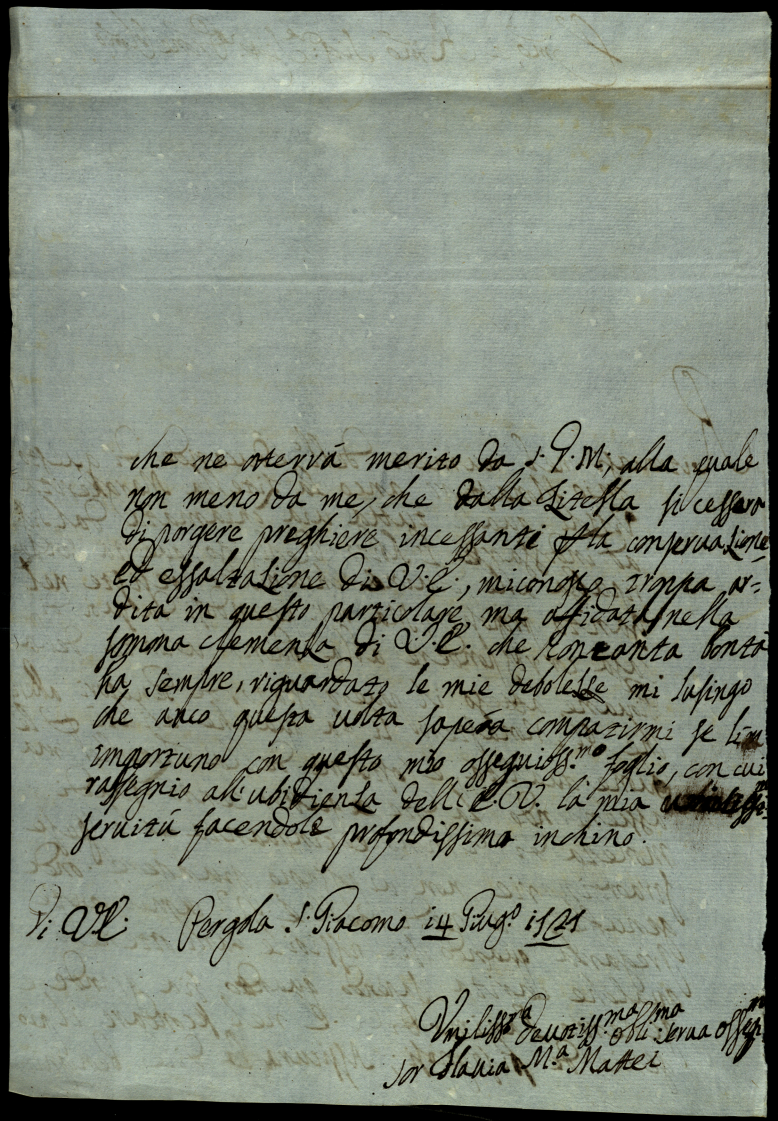 che ne otterrá merito da S. D. M., alla quale
non meno da me, che dalla Zitella si cesserà
di porgere preghiere incessanti p la conservazione
ed essaltazione di V. E., mi conosco troppa ar-
dita in questo particolare, ma affidata nella
somma clemenza di V. E. che con tanta bontá
ha sempre, riguardato le mie debolezze mi lusingo
che anco questa volta saperá compatirmi se l'im
importuno con questo mio ossequioss.mo foglio, con cui
rassegnio all'ubidienza dell'E. V. la mia
servitú facendole profondissimo inchino.
Di V. E. Pergola S. Giacomo 14 Giug.o
Umiliss.ma devotiss.ma obli.ma serva osseq.ma
Sor Flavia M.a Mattei